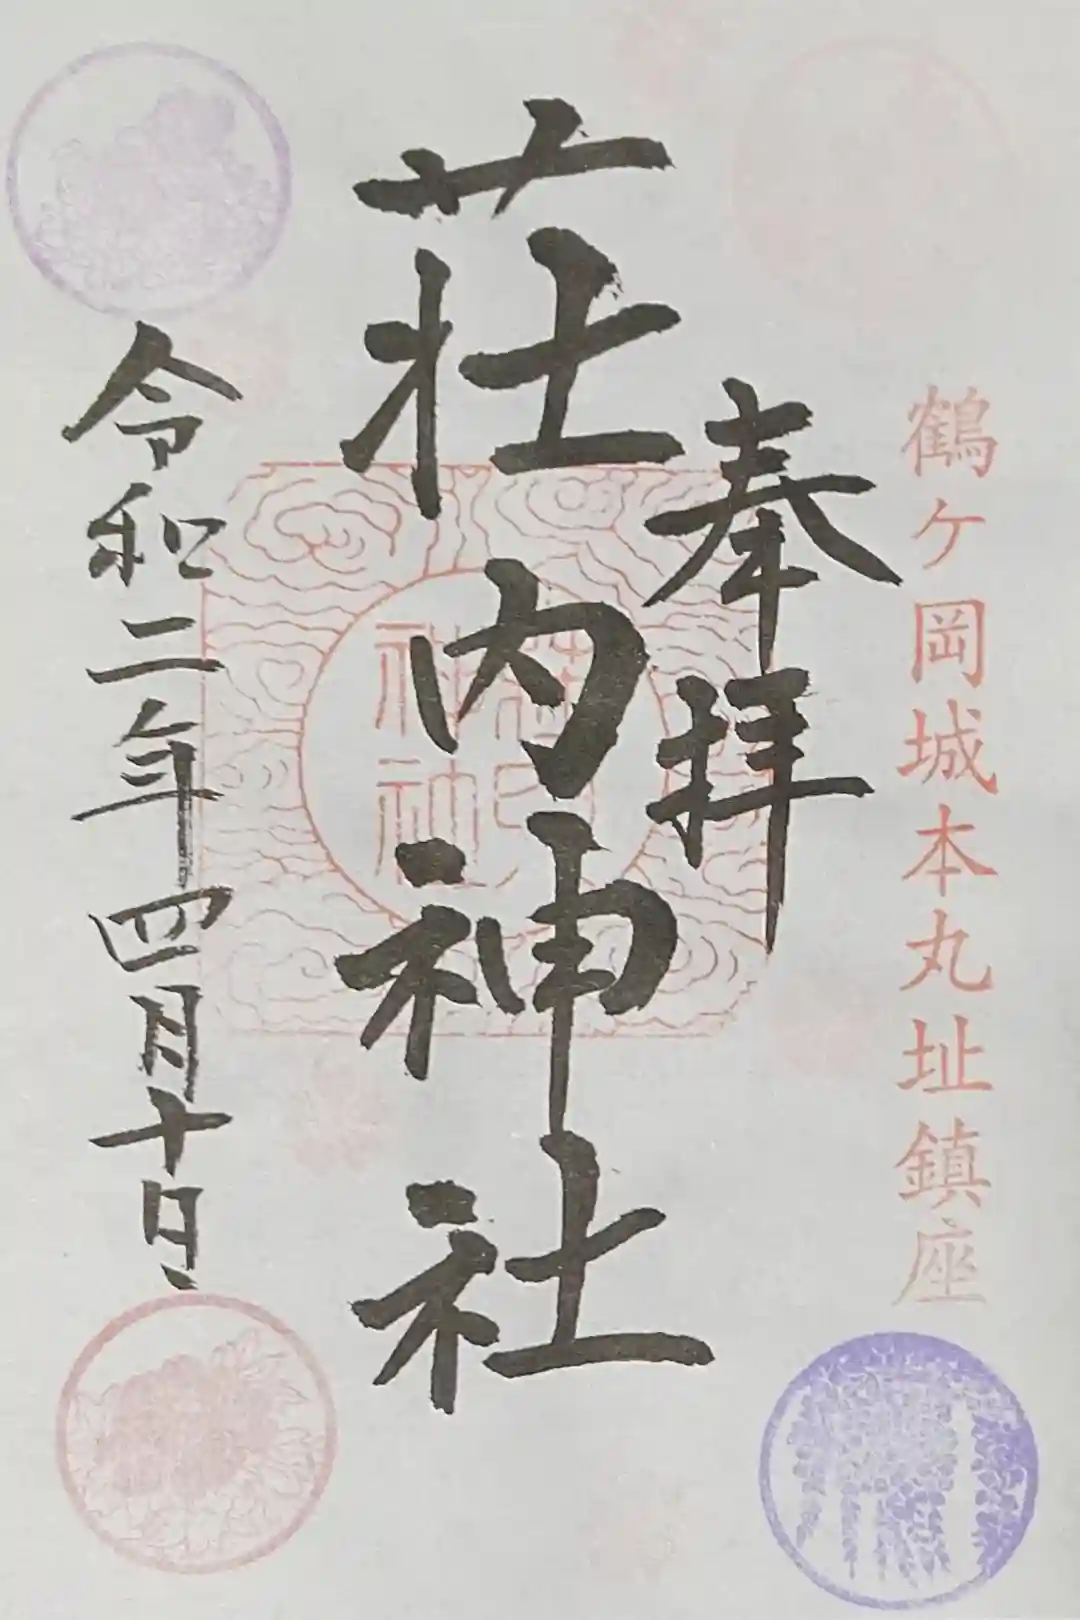 鶴ヶ岡城本丸址鎮座
奉拝
荘内神社
荘内神社
令和二年四月十日